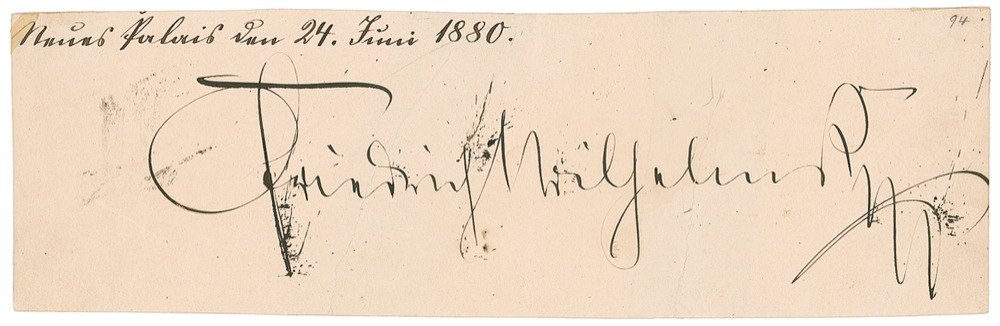 Neues Palais den 24. Juni 1880.
94
Friedrich Wilhelm